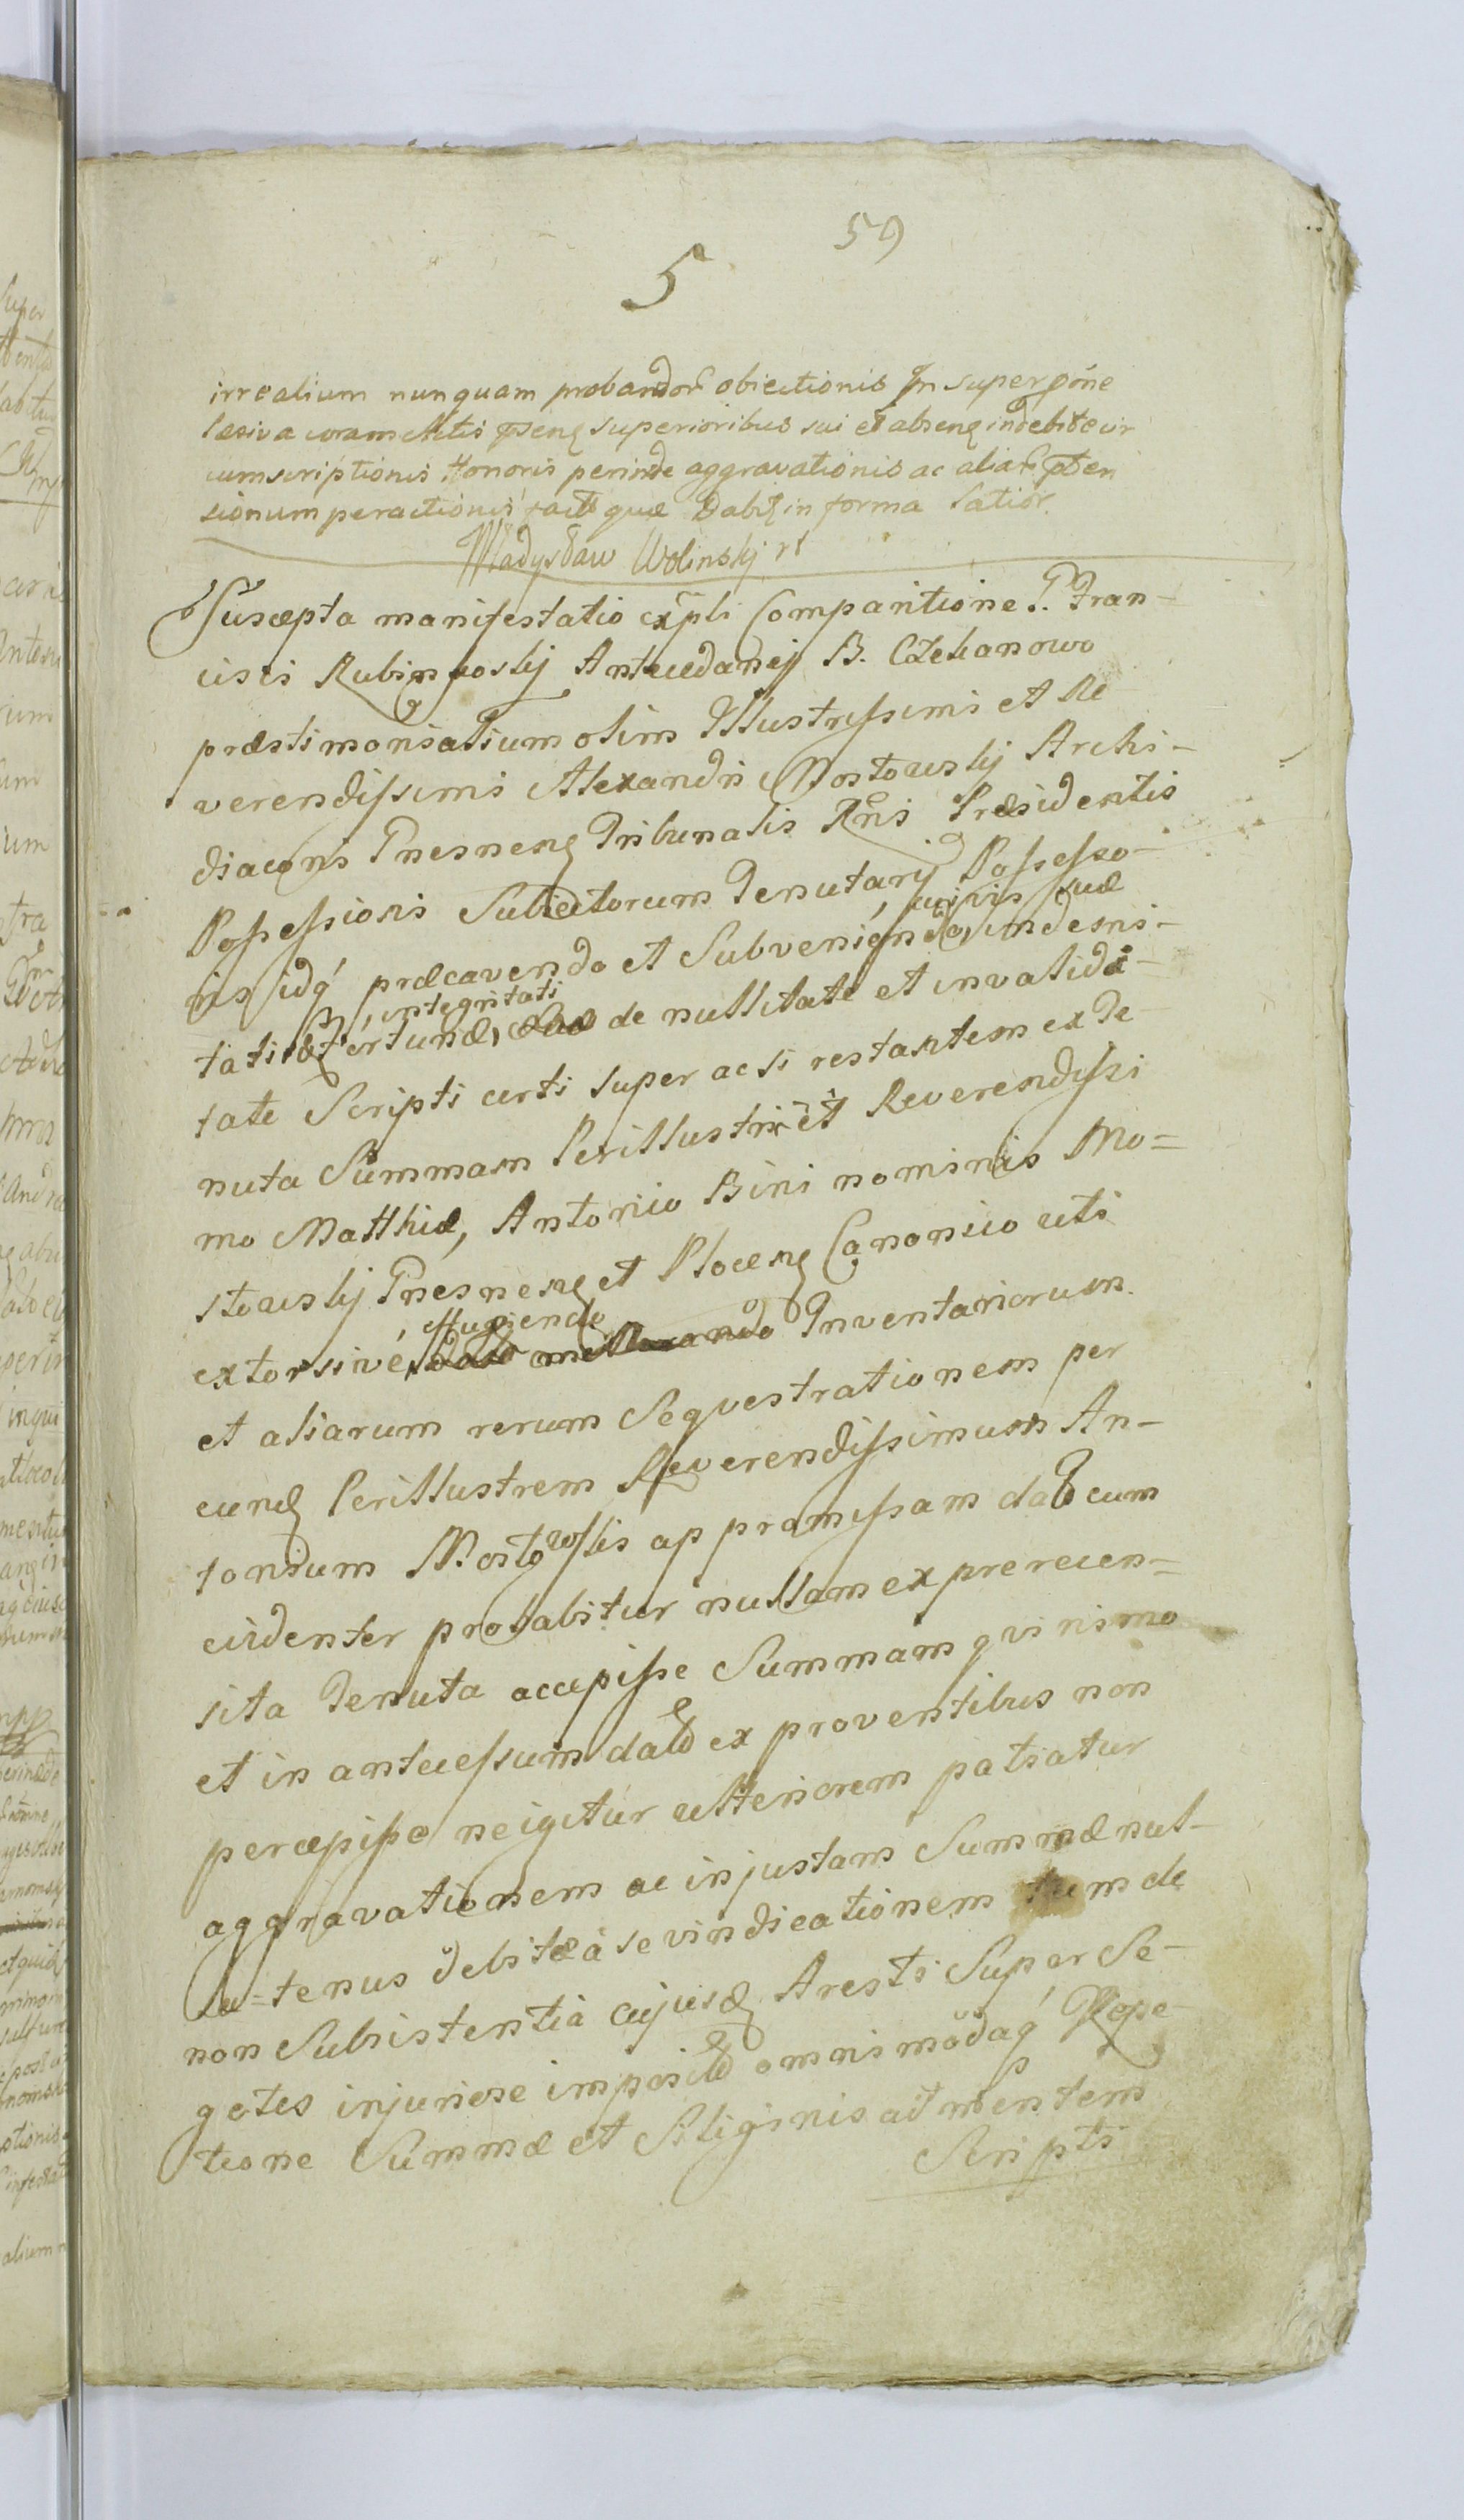 59
5
irrealium nunquam probandor obiectionis In super pone
læsiva coram Actis pseng superioribus sui et abseng indebite cir
cumscriptionis Honoris perinde aggravationis ac aliar pten
sionum peractionis facit quæ dabit in forma latior
Władysław Wolinskj
Suscepta manifestatio expli Comparitione P. Fran-
cisci Rubinkoskj Antecedanej B. Czekanowo
præstimonialium olim Illustrissimi et Re
verendissimi Alexandri Mostowskj Archi-
diaconi Gnesneng Tribunalis Rgni Præsidentis
Possessionis Subditorum Tenutarij Possesso-
ris idq præcavendo et Subveniendo, cujvis suæ indemni-
tati et fortunæ, integritati de nullitate et invalidi-
tate Scripti certi super ac si restantem ex Te-
nuta Summam Perillustri et Reverendissi
mo Matthiæ, Antonio Bini nominis Mo=
stowskj Gnesneng et Ploceng Canonico uti
extorsive, effugiendo Inventariorum
et aliarum rerum Seqvestrationem per
eund Perillustrem Reverendissimum An-
tonium Mostowskis ap promissam dato cum
evidenter probabitur nullam ex prerecen=
sita Tenuta accepisse Summam qvinimo
et in antecessum dato ex proventibus non
percepisse ne igitur ulteriorem patiatur
aggravationem ac injustam Summæ nul-
la=tenus debitæ a se vindicationem tum de
non Subsistentia cujusd Aresti Super Se-
getes injuriose impositi omnimodaq Repe-
tione Summæ et Siliginis ad mentem
Scripti